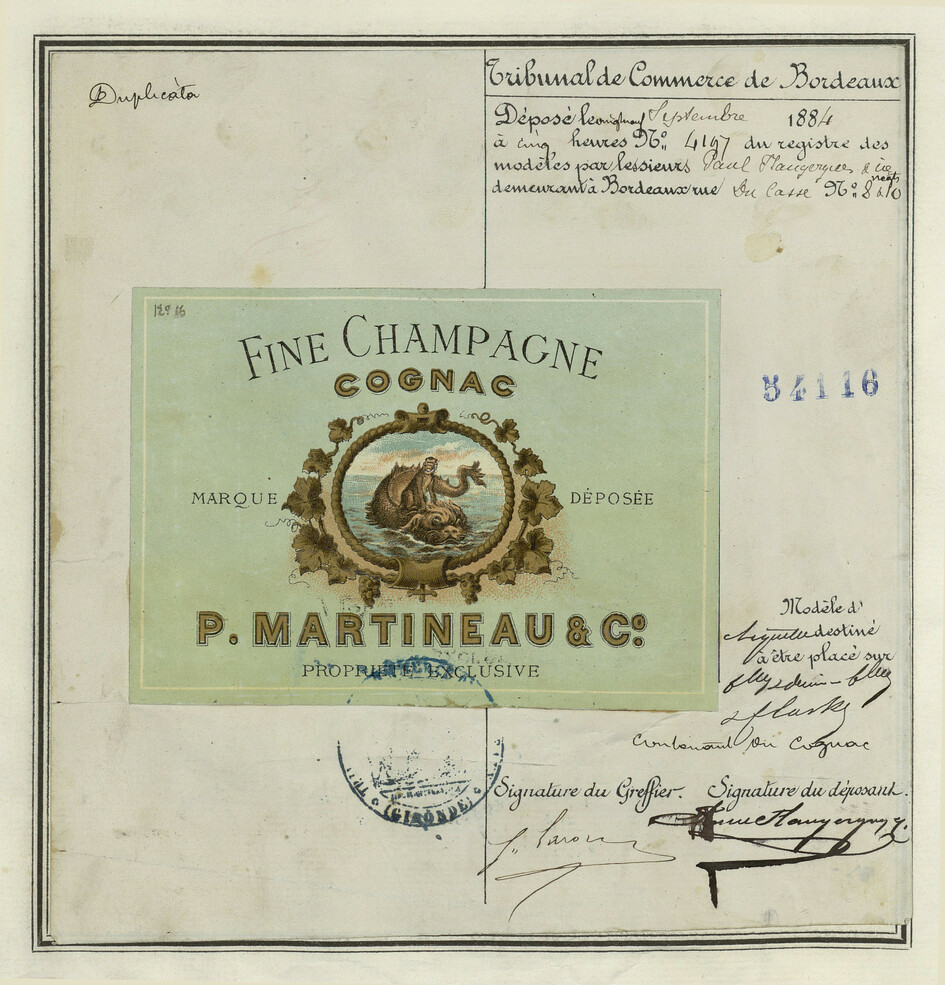 Duplicata
Tribunal de Commerce de Bordeaux
Déposé le Septembre 1884
à cinq heures No: 4197 du registre des
modèles par les sieurs Paul
demeurant à Bordeaux rue Du Casse No: 8 à 10
No 16
FINE CHAMPAGNE
COGNAC
MARQUE DÉPOSÉE
P. MARTINEAU & Co:
PROPRIÉTÉ EXCLUSIVE
54116
Modèle d'
destiné
à être placé sur
contenant du Cognac
(GIRONDE)
Signature du Greffier. Signature du déposant.